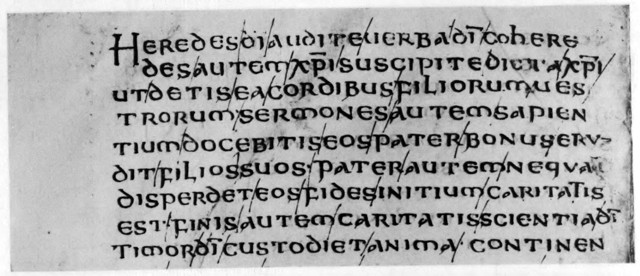 HEREDES/DĪ/AUDITE/UERBA/DĪ/COHERE
DES/AUTEM/XP̄I/SUSCIPITE/DICTA/XP̄I/
UT/DETIS/EA/CORDIBUS/FILIORUM/UES
TRORUM/SERMONES/AUTEM/SAPIEN
TIUM/DOCEBITIS/EOS/PATER/BONUS/ERU
DIT/FILIOS/SUOS/PATER/AUTEM/NEQUĀ
DISPERDET/EOS/FIDES/INITIUM/CARITATIS
EST/FINIS/AUTEM/CARITATIS/SCIENTIA/DĪ
TIMOR/DĪ/CUSTODIET/ANIMA/CONTINEN